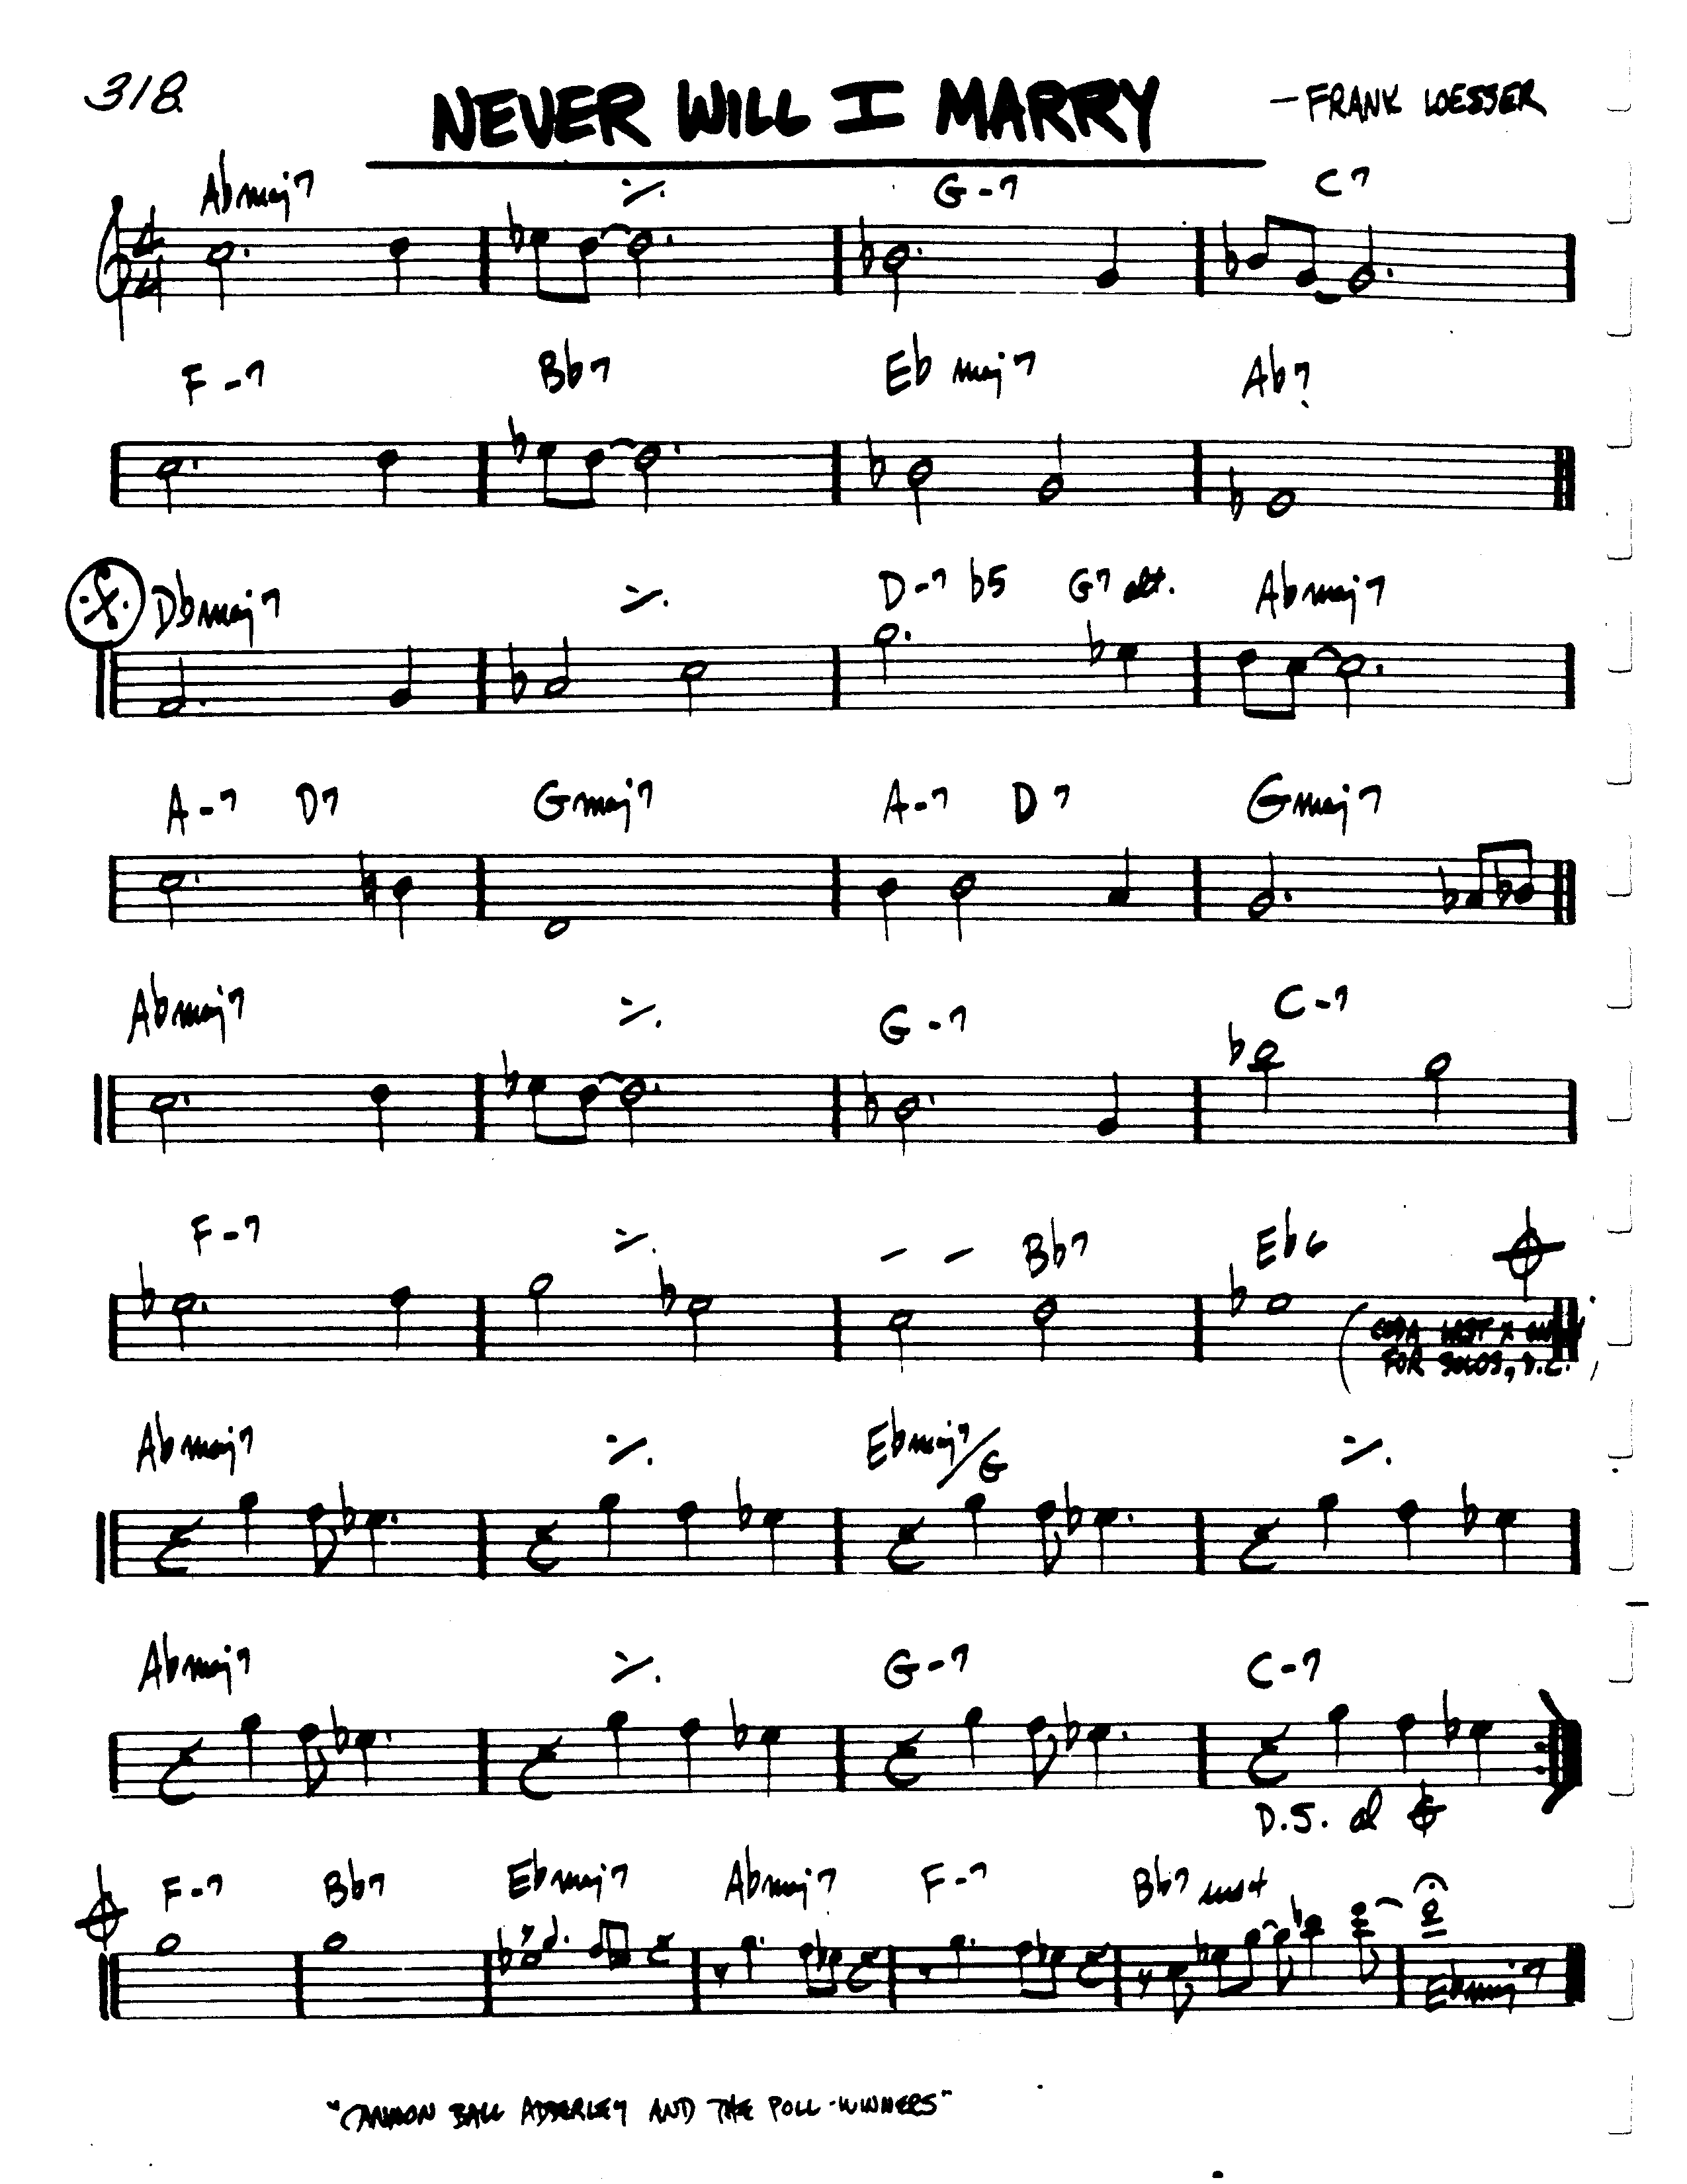 318.
NEVER WILL I MARRY
- FRANK LOESSER
Abmaj7 G-7 C7
F-7 Bb7 Eb maj7 Ab7
Dbmaj7 D-7 b5 G7 alt. Abmaj7
A-7 D7 Gmaj7 A-7 D7 Gmaj7
Abmaj7 G-7 C-7
F-7 Bb7 Eb6
(CODA LAST X ONLY
FOR SOLOS, D.C.)
Abmaj7 Ebmaj7/G
Abmaj7 G-7 C-7
D.S. al
F-7 Bb7 Ebmaj7 Abmaj7 F-7 Bb7 sus4
Ebmaj7
"CANNON BALL ADDERLEY AND THE POLL-WINNERS"